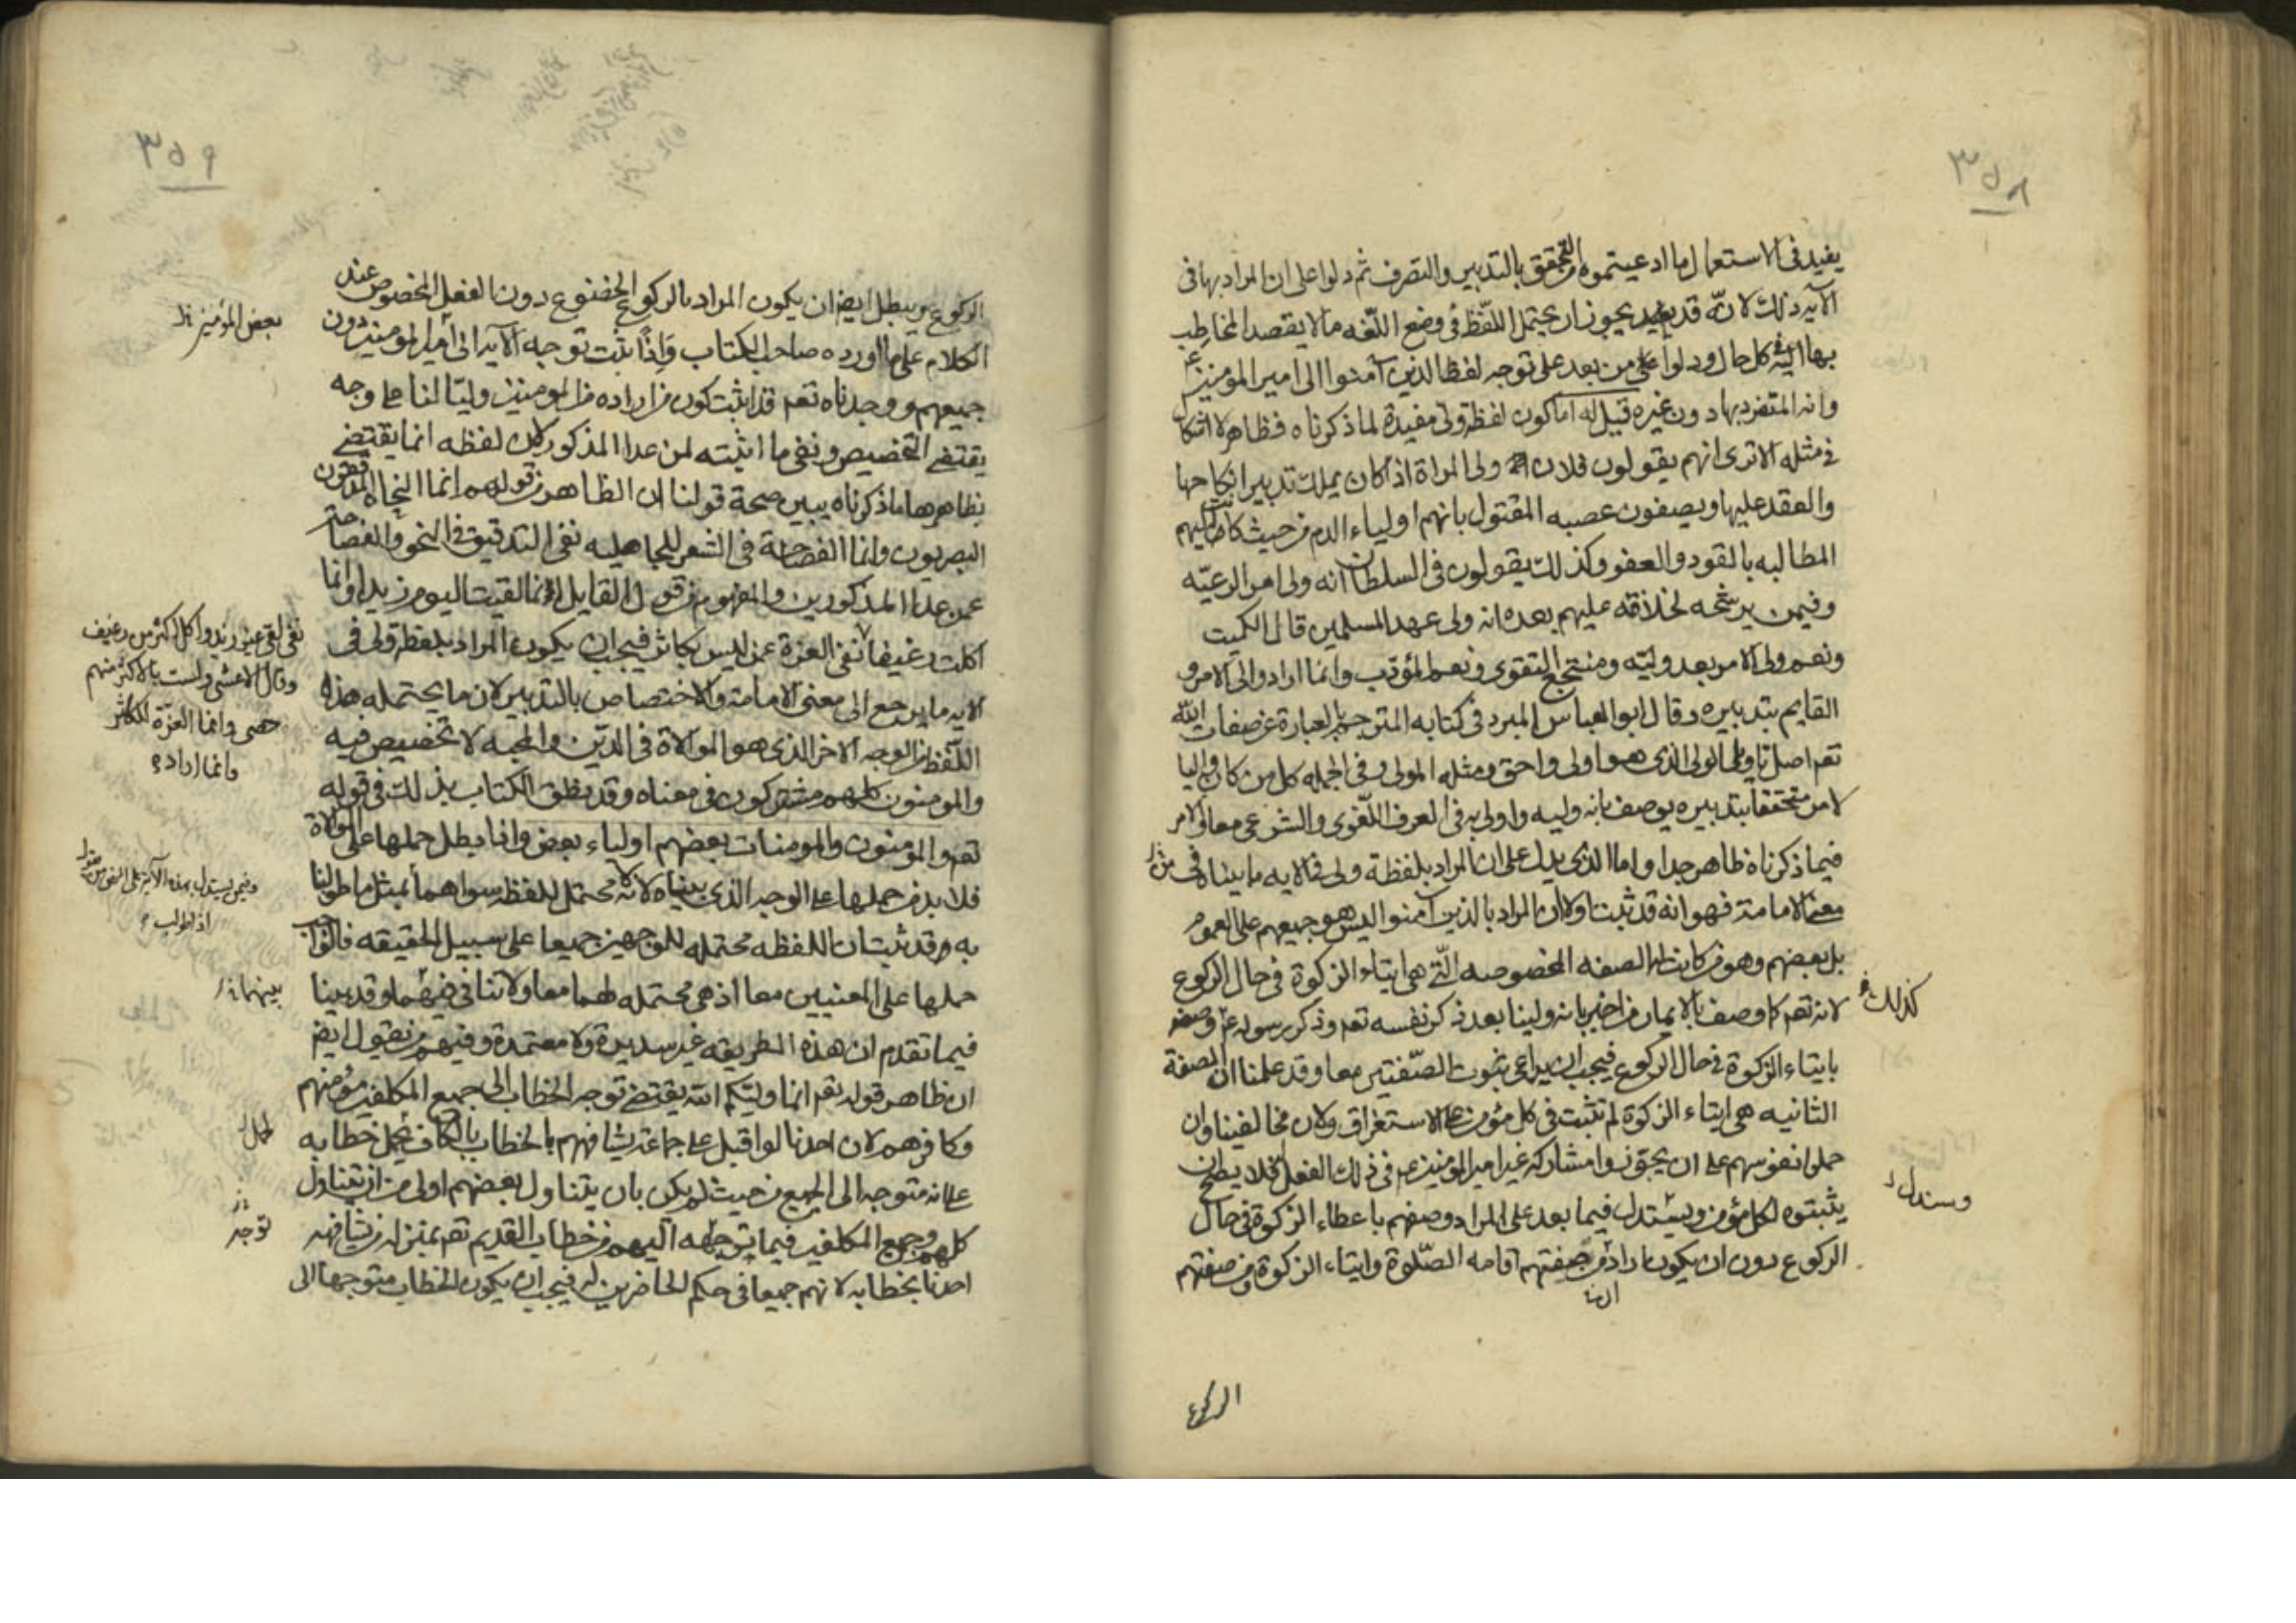 ٣٥٨
يفيد في الاستعمال ما ادعيتموه من التحقق بالتدبير والتصرف ثم دلوا على ان المراد بها في
الآية ذلك لانه قد يجوز ان يحتمل اللفظ في وضع اللغه ما لا يقصد المخاطب
بها اليه في كل حال ودلوا من بعد على توجه لفظ الذين آمنوا الى امير المؤمنين ع
وانه المتفرد بها دون غيره قيل له اما كون لفظة ولي مفيدة لما ذكرناه فظاهر لا اشكال
في مثله الا ترى انهم يقولون فلان ولي المراة اذا كان يملك تدبير انكاحها
والعقد عليها ويصفون عصبه المقتول بانهم اولياء الدم من حيث كانت اليهم
المطالبه بالقود والعفو وكذلك يقولون في السلطان انه ولي امر الرعيّه
وفيمن يرشحه لخلافته عليهم بعده انه ولي عهد المسلمين قال الكميت
ونعم ولي الامر بعد وليّه ومنتجع التقوى ونعم المؤدّب وانما اراد والي الامر و
القايم بتدبيره وقال ابو العباس المبرد في كتابه المترجم بالعبارة عن صفات الله
تعم اصل تاويل الولي الذي هو اولى واحق ومثله المولى وفي الجمله كل من كان واليا
لامر متحققا بتدبيره يوصف بانه وليه واولى به في العرف اللّغوي والشرعي معا والامر
فيما ذكرناه ظاهر جدا واما الذي يدل على ان المراد بلفظة ولي في الايه ما بيناه من
معنى الامامة فهو انه قد ثبت اولا ان المراد بالذين آمنوا ليس هو جميعهم على العموم
بل بعضهم وهو من كانت له الصفه المخصوصه الّتي هي ايتاء الزكوة في حال الركوع
لانه تعم كما وصف بالايمان من اخبر بانه ولينا بعد ذكر نفسه تعم وذكر رسوله ع وصفه
كذلك
بايتاء الزكوة في حال الركوع فيجب ان يراعى ثبوت الصّفتين معا وقد علمنا ان الصفة
الثانيه هي ايتاء الزكوة لم تثبت في كل مؤمن على الاستغراق ولان مخالفينا وان
حملوا نفوسهم على ان يجوّزوا مشاركة غير امير المؤمنين ع في ذلك الفعل فلا يصح ان
يثبتوه لكل مؤمن ويستدل فيما بعد على المراد وصفهم باعطاء الزكوة في حال
وسندل
الركوع دون ان يكون اراد من صفتهم اقامه الصّلوة وايتاء الزكوة ومن صفتهم
الركوع
٣٥٩
الركوع ويبطل ايضا ان يكون المراد بالركوع الخضوع دون الفعل المخصوص عند
الكلام على ما اورده صاحب الكتاب فاذا ثبت توجه الآية الى المومنين دون
بعض المؤمنين
جميعهم ووجدناه تعم قد اثبت كون من اراده من المومنين وليّا لنا على وجه
يقتضي التخصيص ونفي ما اثبته لمن عدا المذكور لان لفظه انما يقتضي
بظاهرها ما ذكرناه يبين صحة قولنا ان الظاهر من قولهم انما النحاه المدققون
البصريون وانما الفصاحة في الشعر للجاهليه نفي التدقيق في النحو والفصاحة
عمن عدا المذكورين والمفهوم من قول القايل انما لقيت اليوم زيدا وانما
اكلت رغيفا نفي العزة عمن ليس بكاثر فيجب ان يكون المراد بلفظة ولي في
نفي لقي غير زيد واكل اكثر من رغيف
وقال الاعشى ولست بالاكثر منهم
حصى وانما العزّة للكاثر
وانما اراد
الايه ما يرجع الى معنى الامامة والاختصاص بالتدبير لان ما يحتمله هذه
اللّفظه من الوجه الاخر الذي هو الموالاة في الدّين والمحبه لا تخصيص فيه
والمومنون كلهم مشتركون في معناه وقد نطق الكتاب بذلك في قوله
تعم والمؤمنون والمومنات بعضهم اولياء بعض واذا بطل حملها على الموالاة
فلا بد من حملها على الوجه الذي بيناه لانه لا محتمل للفظه سواهما
وفيمن يستدل بهذه الآية على النص من يقول
اذا طولب
بمثل ما طولبنا
به قد ثبت ان اللفظه محتمله للوجهين جميعا على سبيل الحقيقه فالواجب
حملها على المعنيين معا اذ هي محتمله لهما معا ولا تنافي بينهما وقد بينا
بينهما
فيما تقدم ان هذه الطريقه غير سديدة ولا معتمدة وفيهم من يقول ايضا
ان ظاهر قوله تعم انما وليكم الله يقتضي توجه الخطاب الى جميع المكلفين مؤمنهم
وكافرهم لان احدنا لو اقبل على جماعة يشافههم بالخطاب بالكاف يحمل خطابه
لحمل
على انه متوجه الى الجميع من حيث لم يكن بان يتناول بعضهم اولى من ان يتناول
كلهم وجميع المكلفين فيما توجهه اليهم من خطاب القديم تعم بمنزلة من يشافهه
توجه
احدنا بخطابه لانهم جميعا في حكم الحاضرين له فيجب ان يكون الخطاب متوجها الى